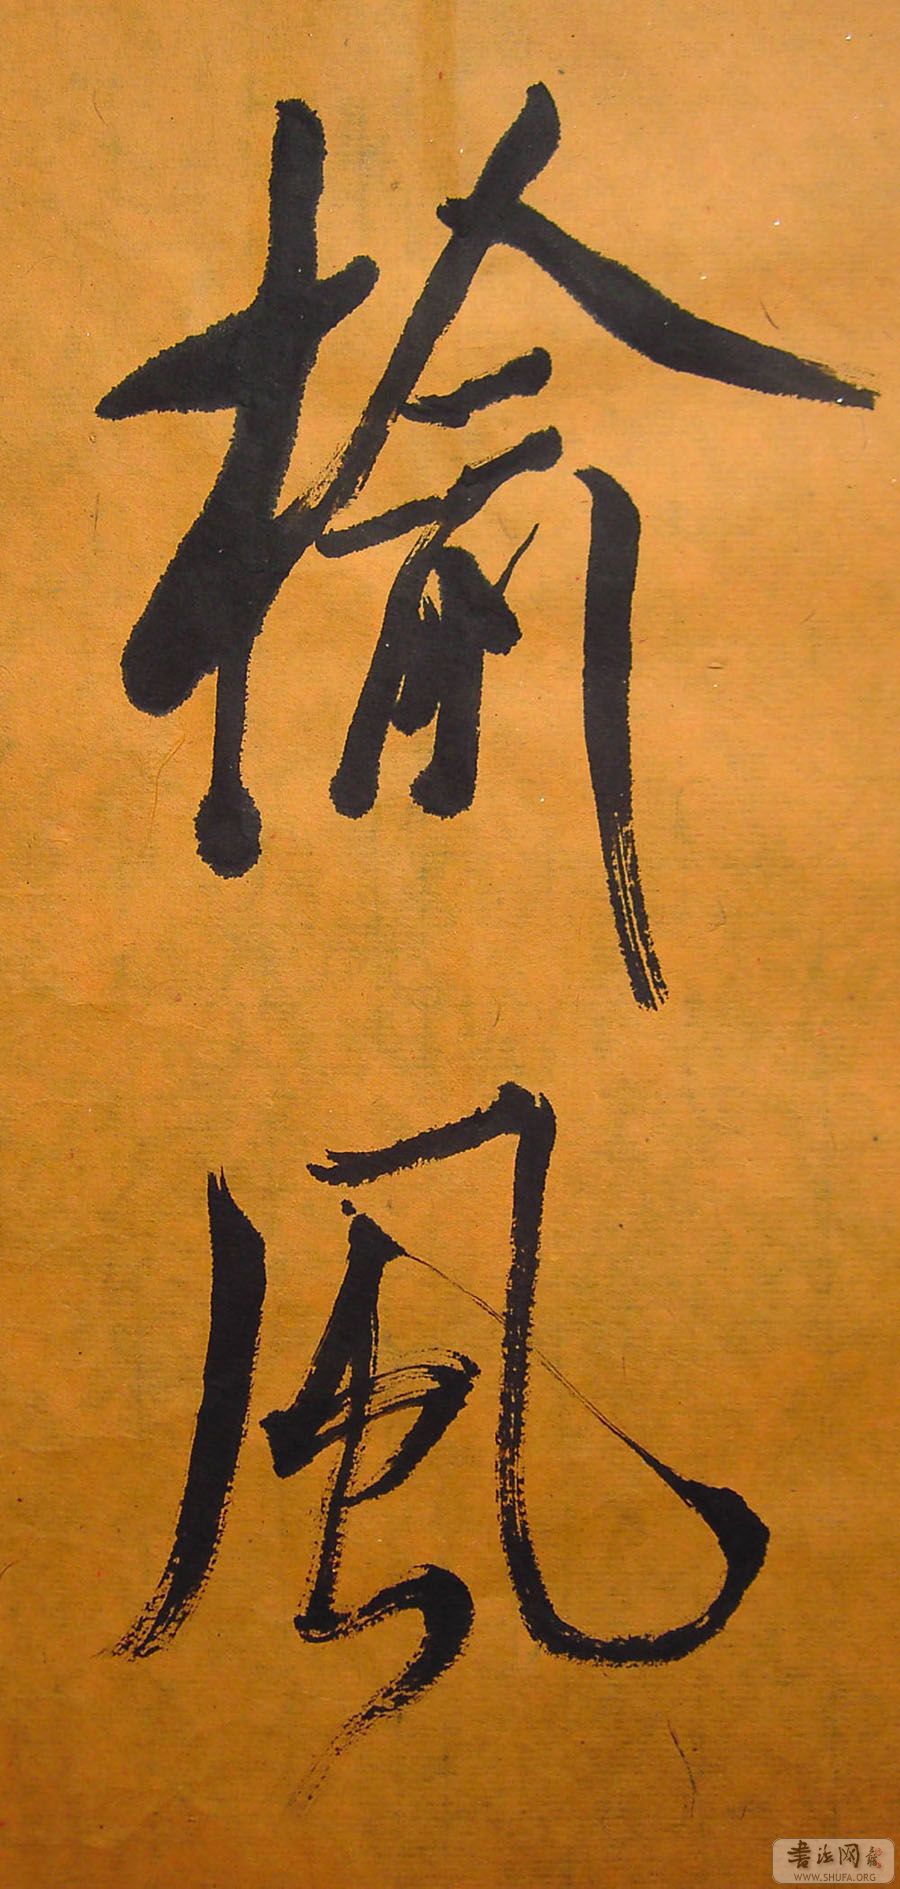 榆
風
書法网
WWW.SHUFA.ORG